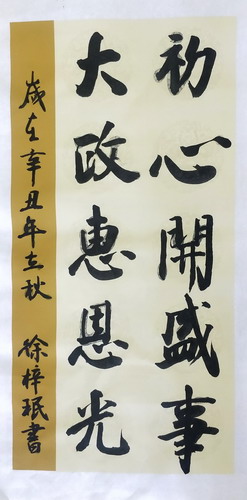 初心開盛事
大政惠恩光
歲在辛丑年立秋 徐梓珉書